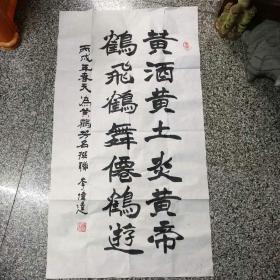 黄酒黄土炎黄帝
鶴飛鶴舞僊鶴遊
丙戌年春天為黄鶴芳名撰聯 李